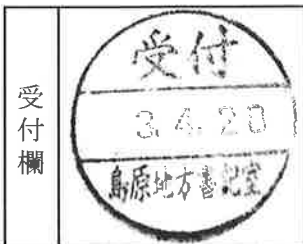 受付欄
受付
3.4.20
島原地方書記室